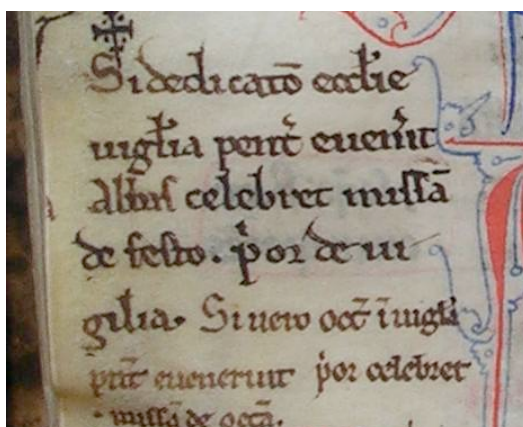 Si dedicatō eccłie
uigłia pent̄ euen̄it
Abbas celebret missā
de festo. p̄or de ui
gilia. Si uero oct̄ ī uigłi
pn̄t euenerint p̄or celebret
missā de octā.